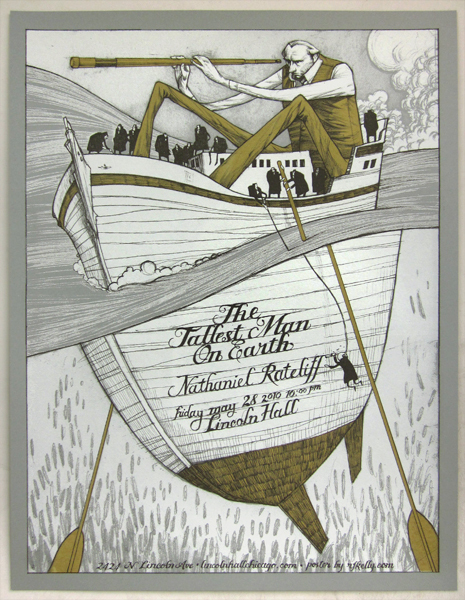 The
Tallest Man
On Earth
Nathaniel Rateliff
Friday may 28 2010 10:00 pm
Lincoln Hall
2424 N Lincoln Ave • lincolnhallchicago.com • poster by rjkelly.com